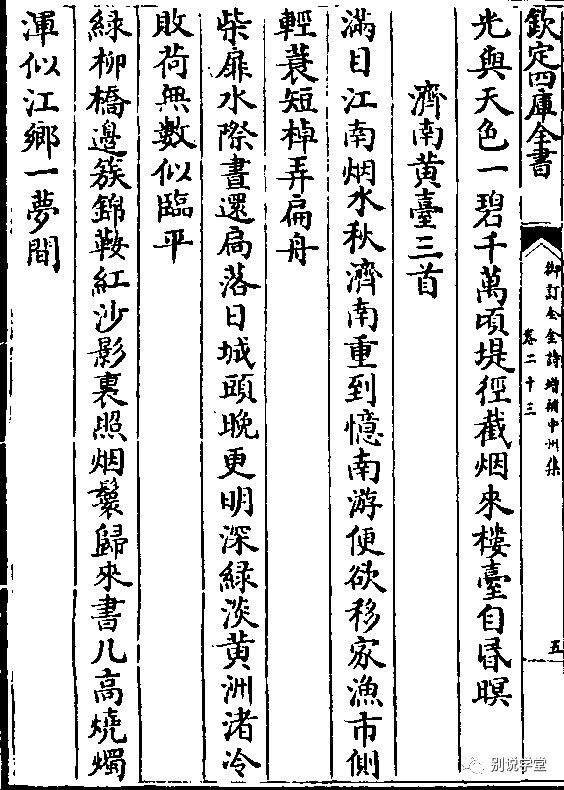 欽定四庫全書
御訂全金詩增補中州集
卷二十三
五
光與天色一碧千萬頃堤徑截烟來樓臺自昏暝
濟南黄臺三首
滿目江南烟水秋濟南重到憶南游便欲移家漁市側
輕蓑短棹弄扁舟
柴扉水際晝還扃落日城頭晚更明深緑淡黄洲渚冷
敗荷無數似臨平
緑柳橋邉簇錦鞍紅沙影裏照烟鬟歸來書几高燒燭
渾似江鄉一夢間
别说学堂